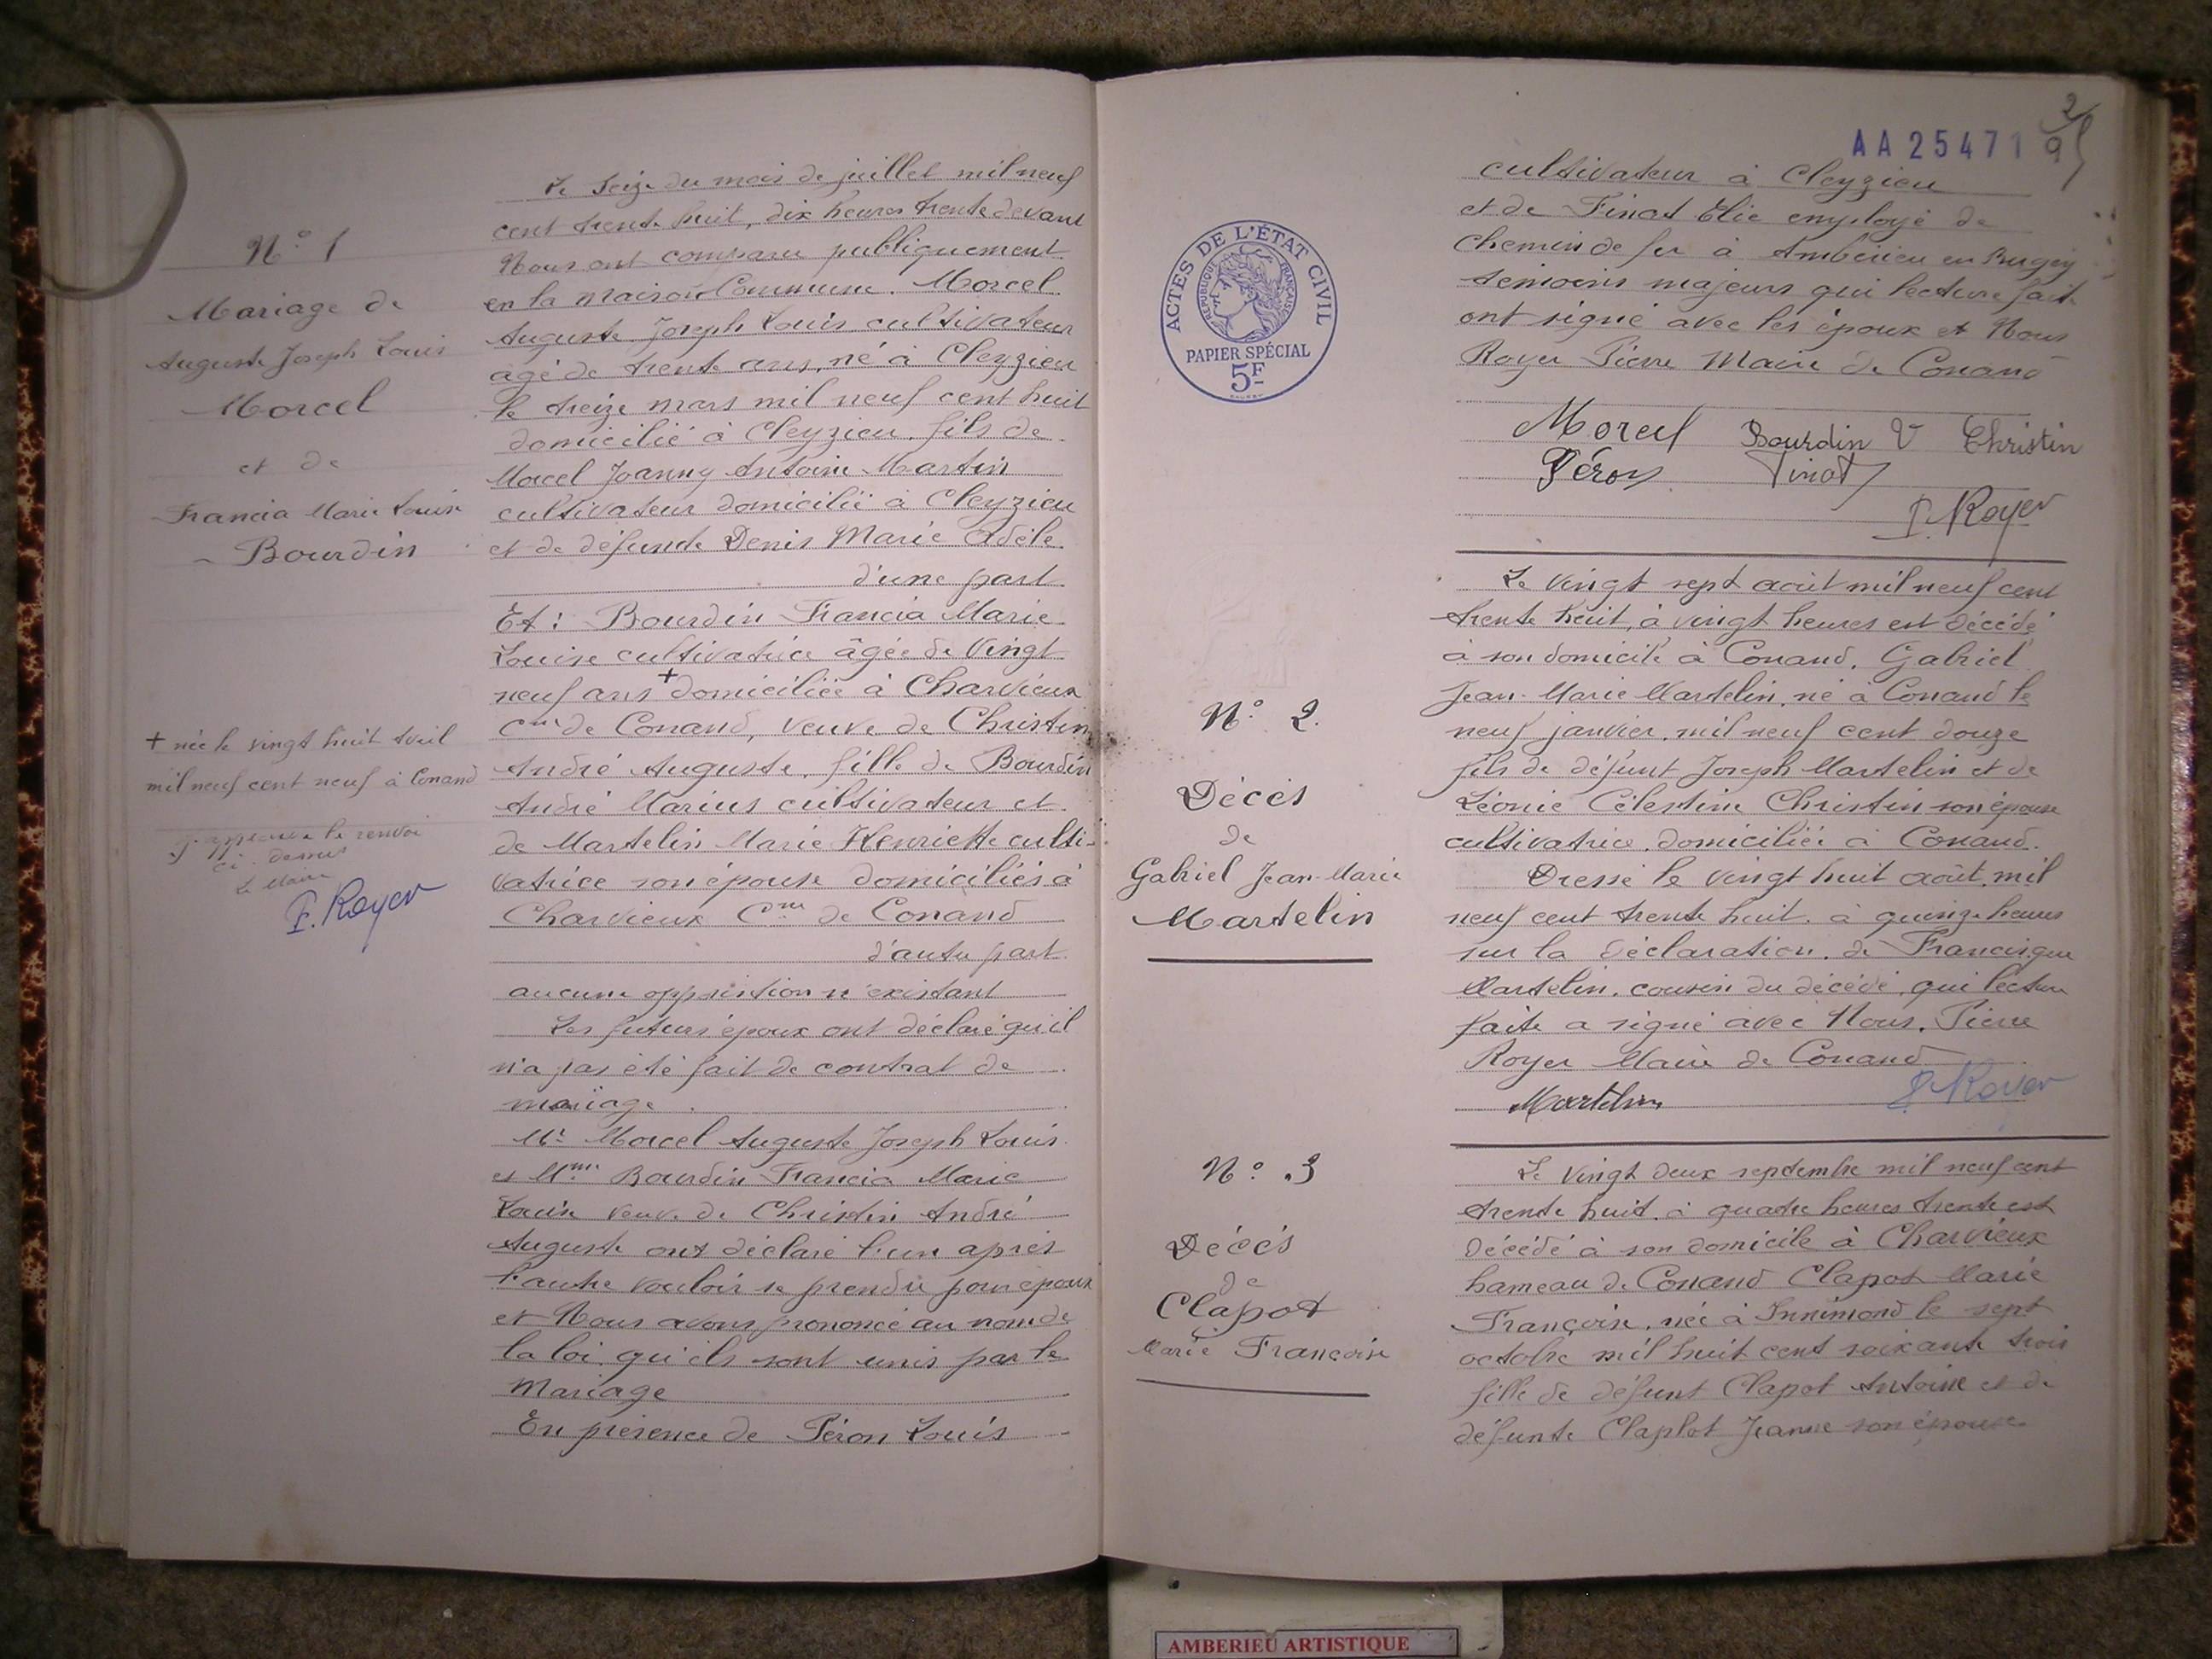 N° 1
Mariage de
Auguste Joseph Louis
Morcel
et de
Francia Marie Louise
Bourdin
+ née le vingt huit avril
mil neuf cent neuf à Conand
j'approuve le renvoi
ci-dessus
Le Maire
P. Royer
Le seize du mois de juillet mil neuf
cent trente huit, dix heures trente devant
Nous ont comparu publiquement
en la maison Commune. Morcel
Auguste Joseph Louis cultivateur
âgé de trente ans, né à Cleyzieu
le treize mars mil neuf cent huit
domicilié à Cleyzieu, fils de
Morcel Joanny Antoine Martin
cultivateur domicilié à Cleyzieu
et de défunte Denis Marie Adèle
d'une part
Et : Bourdin Francia Marie
Louise cultivatrice âgée de Vingt
neuf ans + domiciliée à Charvieux
Cne de Conand, veuve de Christin
André Auguste, fille de Bourdin
André Marius cultivateur et
de Martelin Marie Henriette culti-
vatrice son épouse domiciliés à
Charvieux Cne de Conand
d'autre part
aucune opposition n'existant
Les futurs époux ont déclaré qu'il
n'a pas été fait de contrat de
mariage.
Mr Morcel Auguste Joseph Louis
et Mme Bourdin Francia Marie
Louise veuve de Christin André
Auguste ont déclaré l'un après
l'autre vouloir se prendre pour époux
et Nous avons prononcé au nom de
la loi qu'ils sont unis par le
Mariage
En présence de Péron Louis
AA 25471
2
9
cultivateur à Cleyzieu
et de Tinat Elie employé de
Chemin de fer à Ambérieu en Bugey
témoins majeurs qui lecture faite
ont signé avec les époux et Nous
Royer Pierre Maire de Conand
Morcel Bourdin V Christin
Péron Tinat
P. Royer
ACTES DE L'ÉTAT CIVIL
RÉPUBLIQUE FRANÇAISE
PAPIER SPÉCIAL
5F
N° 2.
Décès
de
Gabriel Jean-Marie
Martelin
Le vingt sept août mil neuf cent
trente huit, à vingt heures est décédé
à son domicile à Conand, Gabriel
Jean-Marie Martelin, né à Conand le
neuf janvier mil neuf cent douze
fils de défunt Joseph Martelin et de
Léonie Célestine Christin son épouse
cultivatrice domiciliée à Conand.
Dressé le vingt huit août, mil
neuf cent trente huit à quinze heures
sur la déclaration de Francisque
Martelin, cousin du décédé, qui lecture
faite a signé avec Nous, Pierre
Royer Maire de Conand
Martelin P. Royer
N° 3
Décès
de
Clapot
Marie Françoise
Le vingt deux septembre mil neuf cent
trente huit à quatre heures trente est
décédé à son domicile à Charvieux
hameau de Conand Clapot Marie
Françoise, née à Innimond le sept
octobre mil huit cent soixante trois
fille de défunt Clapot Antoine et de
défunte Claplot Jeanne son épouse
AMBERIEU ARTISTIQUE